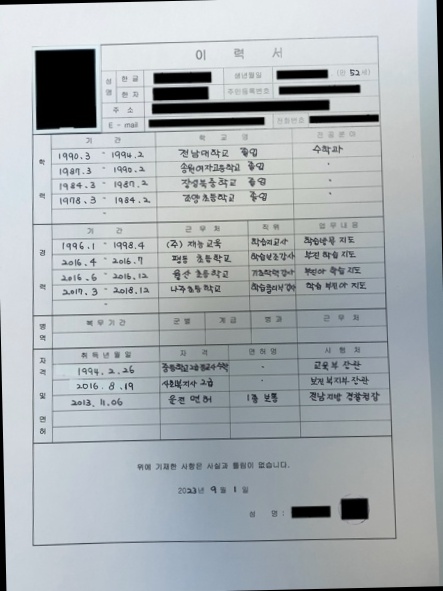 이 력 서
성 명 한 글 생년월일 (만 52세)
한 자 주민등록번호
주 소
E - mail 전화번호
학 력
기 간 학 교 명 전공분야
1990.3 ~ 1994.2 전남대학교 졸업 수학과
1987.3 ~ 1990.2 송원여자고등학교 졸업 "
1984.3 ~ 1987.2 장성북중학교 졸업 "
1978.3 ~ 1984.2 초등학교 졸업 "
~
경 력
기 간 근 무 처 직위 업무내용
1996.1 ~ 1998.4 (주) 재능교육 학습지교사 학습방문 지도
2016.4 ~ 2016.7 평동 초등학교 학습보조강사 부진 학습 지도
2016.6 ~ 2016.12 월산 초등학교 기초학력강사 부진아 학습 지도
2017.3 ~ 2018.12 나주초등학교 학습클리닉강사 학습 부진아 지도
~
병 역
복무기간 군별 계급 병과 근 무 처
자 격 및 면 허
취득년월일 자 격 면허명 시 험 처
1994.2.26 중등학교2급정교사수학 - 교육부 장관
2016.8.19 사회복지사 2급 - 보건복지부 장관
2013.11.06 운전 면허 1종 보통 전남지방 경찰청장
위에 기재한 사항은 사실과 틀림이 없습니다.
2023년 9 월 1 일
성 명 :